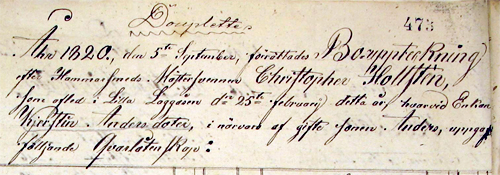 Douplette.
473
Åhr 1820, den 5te September, förrättades Bouppteckning
efter Hammarsmeds Mästersvennen Christopher Hollsten,
som afled i Lilla Laggåsen den 25te februarij detta år, hvarvid Enkan
Kjerstin Anders dotter, i närvaro af gifte sonen Anders, uppgaf
följande Qvarlåtenskap: